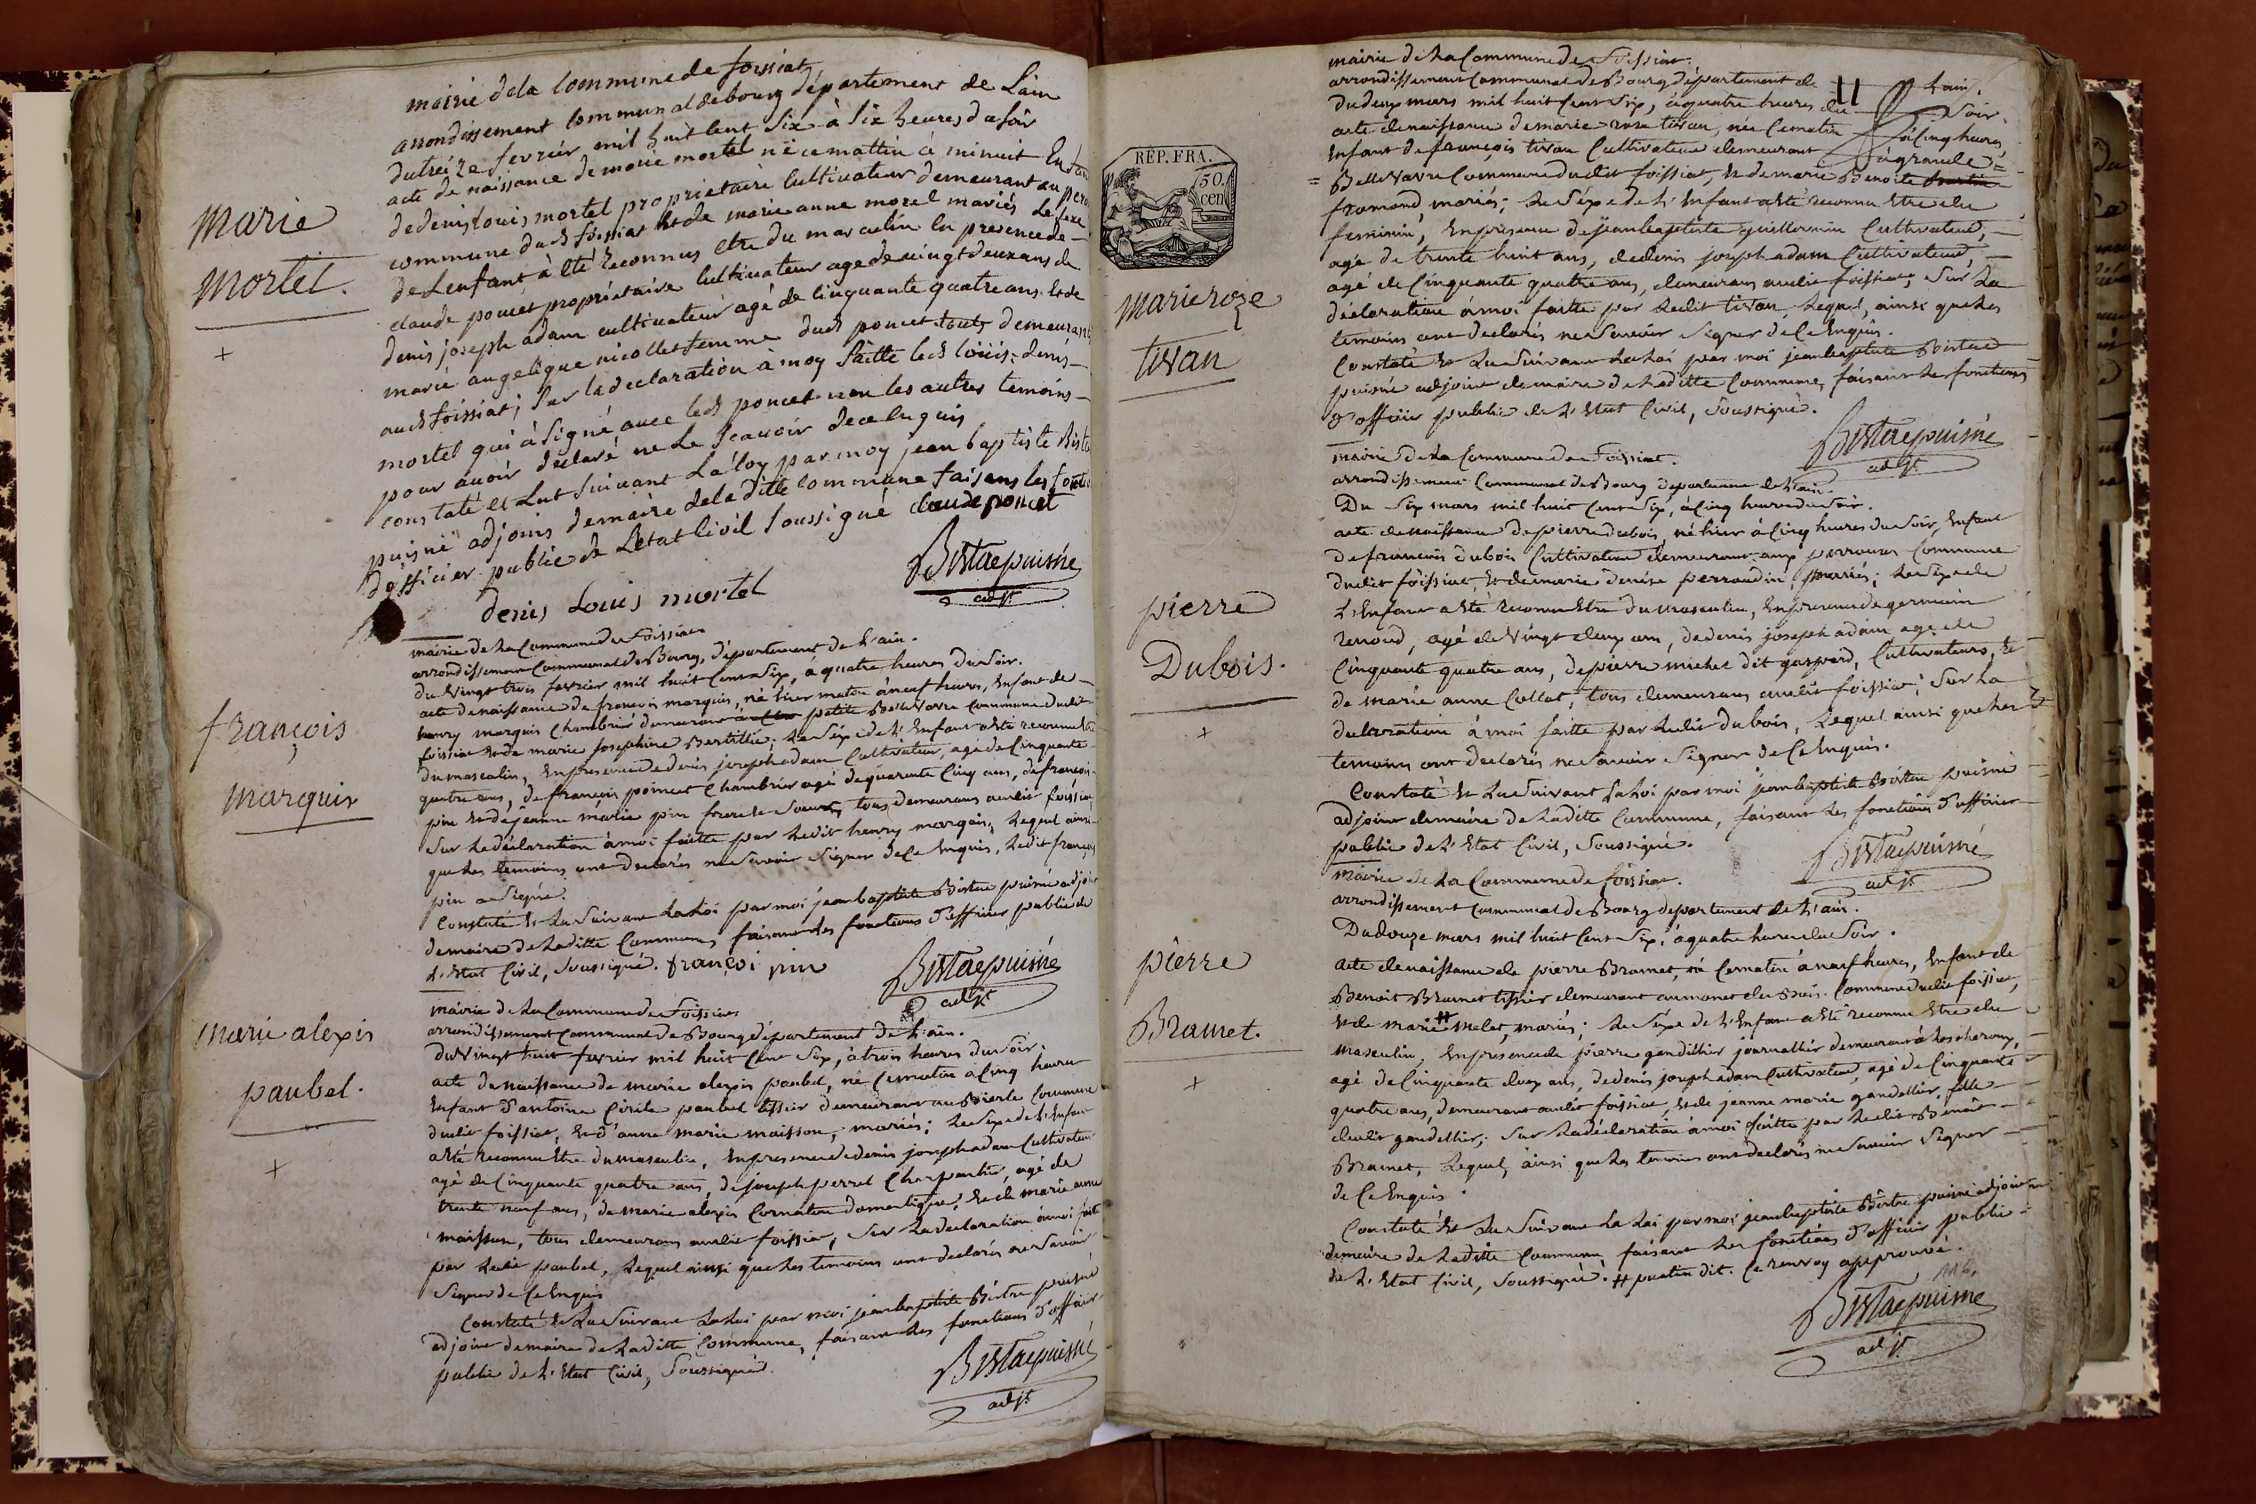 mairie dela Commune de foissiat
arrondissement Communal debourg département de Lain
du treize fevrier mil huit Cent Six à Six heures du soir
acte de naissance de marie mortel né ce mattin à minuit Enfant
de denis Louis mortel proprietaire Cultivateur demeurant au
commune dud foissiat et de marie anne morel mariés Le sexe
de Lenfant à été Reconnus etre du masculin En presence de
claude poncet propriétaire Cultivateur agé de vingt deux ans de
denis joseph adam cultivateur agé de Cinquante quatre ans et de
marie angelique nicollet femme dud poncet touts demeurant
aud foissiat; Sur la declaration à moy faitte led Louis denis
mortel qui à Signé avec led poncet non les autres temoins
pour avoir declaré ne Le Scavoir de ce Enquis
constaté et Lut suivant La Loy par moy jean baptiste
puisné adjoint de maire de la ditte Commune faisans les
d'officier public de Letat Civil Soussigné Claude poncet
denis Louis mortel
Bistre puisné
adjt
Marie
Mortel.
+
mairie de la Commune de Foissiat
arrondissement Communal de Bourg, département de L'ain.
du Vingt trois fevrier mil huit Cent Six, à quatre heures du soir.
acte de naissance de francois marquis, né hier matin à neuf heures, Enfant de
henry marquis Chambrier demeurant petite Bellevavre Commune dudit
foissiat et de marie Josephine Bertillié; Le Sexe de L'Enfant a Eté reconnu Etre
du masculin, En presence de denis joseph adam Cultivateur, agé de Cinquante
quatre ans, de françois poncet Chambrier agé de quarante Cinq ans, de francois
pin et de jeanne marie pin frere et soeur, tous demeurans audit foissiat
Sur la déclaration à moi faitte par Ledit henry marquis, Lequel ainsi
que Les temoins ont declarés ne Savoir Signer de Ce Enquis, Ledit françois
pin a Signé.
Constaté et Lu Suivant La Loi par moi jean baptiste Bistre puisné adjoint
de maire de Laditte Commune faisant Les fonctions d'officier public de
L'Etat Civil, Soussigné. françoi pin
Bistre puisné
adjt
françois
Marquis
mairie de la Commune de Foissiat
arrondissement Communal de Bourg département de L'ain.
du Vingt huit fevrier mil huit Cent Six, à trois heures du soir.
acte de naissance de marie alexis paubel, né Ce matin a Cinq heures
Enfant d'antoine Cirile paubel tissier demeurant au Bierle Commune
dudit foissiat, et d'anne marie maisson, mariés; Le Sexe de L'Enfant
a Eté reconnu Etre du masculin, En presence de denis joseph adam Cultivateur
agé de Cinquante quatre ans, de joseph perret Charpantier, agé de
trente neuf ans, de marie alexis Cornaton domestique; et de marie anne
maisson, tous demeurans audit foissiat, Sur La declaration à moi faitte
par Ledit paubel, Lequel ainsi que Les temoins ont declarés ne Savoir
Signer de Ce Enquis
Constaté et Lu Suivant La Loi par moi jean baptiste Bistre puisné
adjoint de maire de Laditte Commune, faisant Les fonctions d'officier
public de L'Etat Civil, Soussigné.
Bistre puisné
adjt
marie alexis
paubel.
+
RÉP. FRA.
50.
cen
mairie de La Commune de Foissiat.
arrondissement Communal de Bourg département de Lain.
du deux mars mil huit Cent Six, à quatre heures du Soir.
acte de naissance de marie rose tivan, née Ce matin à Cinq heures,
Enfant de françois tivan Cultivateur demeurant à grande
Bellevavre Commune dudit foissiat, et de marie Benoite
fromond, mariés; Le Sexe de L'Enfant a Eté reconnu Etre du
feminin, En presence de jean baptiste guillermin Cultivateur,
agé de trente huit ans, de denis joseph adam Cultivateur,
agé de Cinquante quatre ans, demeurans audit foissiat, Sur La
déclaration à moi faitte par Ledit tivan, Lequel, ainsi que Les
temoins ont declarés ne Savoir Signer de Ce Enquis.
Constaté et Lu Suivant La Loi par moi jean baptiste Bistre
puisné adjoint de maire de Laditte Commune, faisant Les fonctions
d'officier public de L'Etat Civil, Soussigné.
Bistre puisné
adjt
Marie roze
tivan
mairie de La Commune de Foissiat.
arrondissement Communal de Bourg departement de Lain.
Du Six mars mil huit Cent Six, à Cinq heures du Soir.
acte de naissance de pierre dubois, né hier à Cinq heures du Soir, Enfant
de francois dubois Cultivateur demeurant aux Commune
dudit foissiat, et de marie denise perraudin, mariés; Le Sexe de
L'Enfant a Eté reconnu Etre du masculin, En presence de germain
renoud, agé de Vingt deux ans, de denis joseph adam agé de
Cinquante quatre ans, de pierre michel dit gaspard, Cultivateurs, et
de marie anne Collet, tous demeurans audit foissiat; Sur La
declaration à moi faitte par Ledit dubois, Lequel ainsi que Les
temoins ont declarés ne Savoir Signer de Ce Enquis.
Constaté et Lu Suivant La Loi par moi jean baptiste Bistre puisné
adjoint de maire de Laditte Commune, faisant Les fonctions d'officier
public de L'Etat Civil, Soussigné.
Bistre puisné
adjt
pierre
Dubois.
+
mairie de La Commune de foissiat.
arrondissement Communal de Bourg departement de L'ain.
Du douze mars mil huit Cent Six, à quatre heures du Soir.
acte de naissance de pierre Bramet, né Ce matin à neuf heures, Enfant de
Benoit Bramet tissier demeurant au Commune dudit foissiat,
et de marie # melet, mariés; Le Sexe de L'Enfant a Eté reconnu Etre du
masculin, En presence de pierre gandillier journallier demeurant à
agé de Cinquante deux ans, de denis joseph adam Cultivateur, agé de Cinquante
quatre ans, demeurans audit foissiat, et de jeanne marie gandillier, fille
dudit gandillier; Sur La déclaration à moi faitte par Ledit Benoit
Bramet, Lequel, ainsi que Les temoins ont declarés ne Savoir Signer
de Ce Enquis.
Constaté et Lu Suivant La Loi par moi jean baptiste Bistre puisné adjoint
de maire de Laditte Commune faisant Les fonctions d'officier public
de L'Etat Civil, Soussigné. # dit. Ce renvoy approuvé.
Bistre puisné
adjt
pierre
Bramet.
+